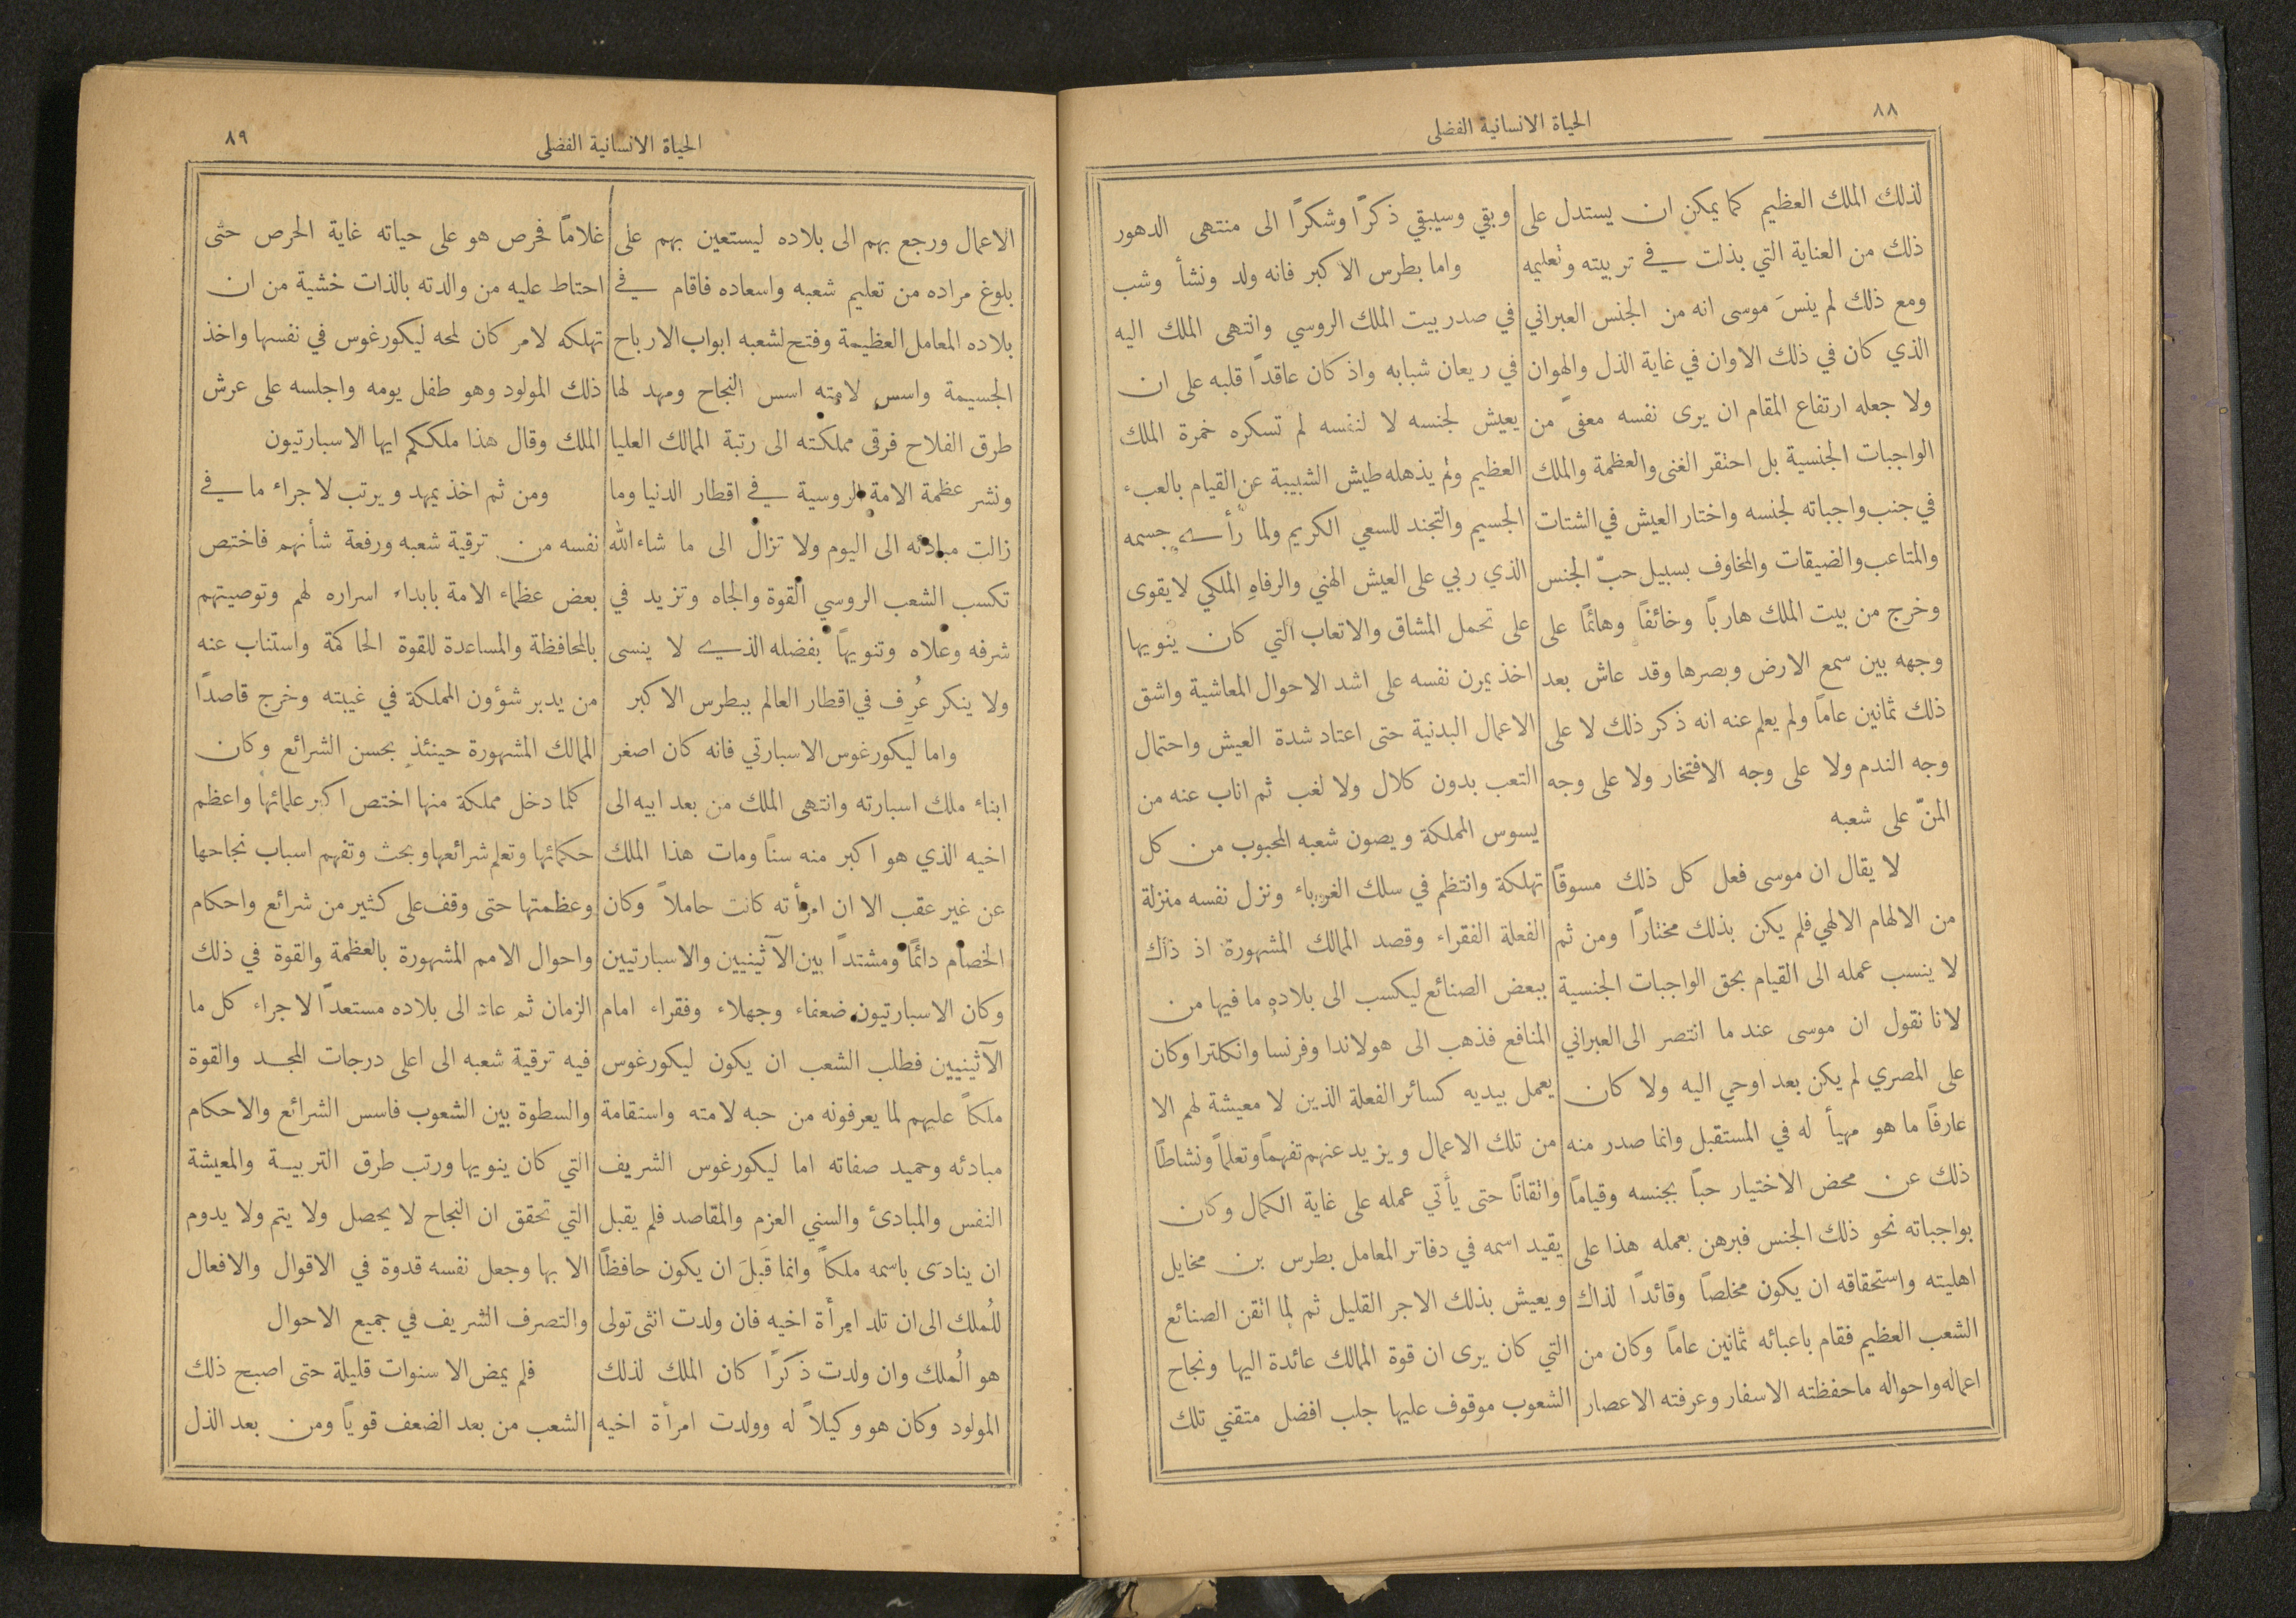 ٨٨
الحياة الانسانية الفضلى
لذلك الملك العظيم كما يمكن ان يستدل على
ذلك من العناية التي بذلت في تربيته وتعليمه
ومع ذلك لم ينسَ موسى انه من الجنس العبراني
الذي كان في ذلك الاوان في غاية الذل والهوان
ولا جعله ارتفاع المقام ان يرى نفسه معفىً من
الواجبات الجنسية بل احتقر الغنى والعظمة والملك
في جنب واجباته لجنسه واختار العيش في الشتات
والمتاعب والضيقات والمخاوف بسبيل حبّ الجنس
وخرج من بيت الملك هاربًا وخائفًا وهائمًا على
وجهه بين سمع الارض وبصرها وقد عاش بعد
ذلك ثمانين عامًا ولم يعلم عنه انه ذكر ذلك لا على
وجه الندم ولا على وجه الافتخار ولا على وجه
المنّ على شعبه
لا يقال ان موسى فعل كل ذلك مسوقًا
من الالهام الالهي فلم يكن بذلك مختارًا ومن ثم
لا ينسب عمله الى القيام بحق الواجبات الجنسية
لانا نقول ان موسى عند ما انتصر الى العبراني
على المصري لم يكن بعد اوحي اليه ولا كان
عارفًا ما هو مهيأ له في المستقبل وانما صدر منه
ذلك عن محض الاختيار حبًا بجنسه وقيامًا
بواجباته نحو ذلك الجنس فبرهن بعمله هذا على
اهليته واستحقاقه ان يكون مخلصًا وقائدًا لذاك
الشعب العظيم فقام باعبائه ثمانين عامًا وكان من
اعماله واحواله ماحفظته الاسفار وعرفته الاعصار
وبقي وسيبقي ذكرًا وشكرًا الى منتهى الدهور
واما بطرس الاكبر فانه ولد ونشأ وشب
في صدر بيت الملك الروسي وانتهى الملك اليه
في ريعان شبابه واذ كان عاقدًا قلبه على ان
يعيش لجنسه لا لنفسه لم تسكره خمرة الملك
العظيم ولم يذهله طيش الشبيبة عن القيام بالعبء
الجسيم والتجند للسعي الكريم ولما رأى جسمه
الذي ربي على العيش الهني والرفاهِ الملكي لا يقوى
على تحمل المشاق والاتعاب التي كان ينويها
اخذ يمرن نفسه على اشد الاحوال المعاشية واشق
الاعمال البدنية حتى اعتاد شدة العيش واحتمال
التعب بدون كلال ولا لغب ثم اناب عنه من
يسوس المملكة ويصون شعبه المحبوب من كل
تهلكة وانتظم في سلك الغرباء ونزل نفسه منزلة
الفعلة الفقراء وقصد الممالك المشهورة اذ ذاك
ببعض الصنائع ليكسب الى بلادهِ ما فيها من
المنافع فذهب الى هولاندا وفرنسا وانكلترا وكان
يعمل بيديه كسائر الفعلة الذين لا معيشة لهم الا
من تلك الاعمال ويزيد عنهم تفهمًا وتعلمًا ونشاطًا
واتقانًا حتى يأتي عمله على غاية الكمال وكان
يقيد اسمه في دفاتر المعامل بطرس بن مخايل
ويعيش بذلك الاجر القليل ثم لما اتقن الصنائع
التي كان يرى ان قوة الممالك عائدة اليها ونجاح
الشعوب موقوف عليها جلب افضل متقني تلك
الحياة الانسانية الفضلى
٨٩
الاعمال ورجع بهم الى بلاده ليستعين بهم على
بلوغ مراده من تعليم شعبه واسعاده فاقام في
بلاده المعامل العظيمة وفتح لشعبه ابواب الارباح
الجسيمة واسس لامته اسس النجاح ومهد لها
طرق الفلاح فرقى مملكته الى رتبة الممالك العليا
ونشر عظمة الامة الروسية في اقطار الدنيا وما
زالت مبادئه الى اليوم ولا تزال الى ما شاء الله
تكسب الشعب الروسي القوة والجاه وتزيد في
شرفه وعلاه وتنويهًا بفضله الذي لا ينسى
ولا ينكر عُرِف في اقطار العالم ببطرس الاكبر
واما ليكورغوس الاسبارتي فانه كان اصغر
ابناء ملك اسبارته وانتهى الملك من بعد ابيه الى
اخيه الذي هو اكبر منه سنًا ومات هذا الملك
عن غير عقب الا ان امرأته كانت حاملاً وكان
الخصام دائمًا ومشتدًا بين الآثينيين والاسبارتيين
وكان الاسبارتيون ضعفاء وجهلاء وفقراء امام
الآثينيين فطلب الشعب ان يكون ليكورغوس
ملكًا عليهم لما يعرفونه من حبه لامته واستقامة
مبادئه وحميد صفاته اما ليكورغوس الشريف
النفس والمبادئ والسني العزم والمقاصد فلم يقبل
ان ينادَى باسمه ملكًا وانما قَبِلَ ان يكون حافظًا
للُملك الى ان تلد امرأة اخيه فان ولدت انثى تولى
هو المُلك وان ولدت ذَكَرًا كان الملك لذلك
المولود وكان هو وكيلاً له وولدت امرأة اخيه
غلامًا فحرص هو على حياته غاية الحرص حتى
احتاط عليه من والدته بالذات خشية من ان
تهلكه لامر كان لمحه ليكورغوس في نفسها واخذ
ذلك المولود وهو طفل يومه واجلسه على عرش
الملك وقال هذا ملككم ايها الاسبارتيون
ومن ثم اخذ يمهد ويرتب لاجراء ما في
نفسه من ترقية شعبه ورفعة شأنهم فاختص
بعض عظماء الامة بابداء اسراره لهم وتوصيتهم
بالمحافظة والمساعدة للقوة الحاكمة واستناب عنه
من يدبر شؤون المملكة في غيبته وخرج قاصدًا
الممالك المشهورة حينئذٍ بحسن الشرائع وكان
كلما دخل مملكة منها اختص اكبر علمائها واعظم
حكمائها وتعلم شرائعها وبحث وتفهم اسباب نجاحها
وعظمتها حتى وقف على كثير من شرائع واحكام
واحوال الامم المشهورة بالعظمة والقوة في ذلك
الزمان ثم عاد الى بلاده مستعدًا لاجراء كل ما
فيه ترقية شعبه الى اعلى درجات المجد والقوة
والسطوة بين الشعوب فاسس الشرائع والاحكام
التي كان ينويها ورتب طرق التربية والمعيشة
التي تحقق ان النجاح لا يحصل ولا يتم ولا يدوم
الا بها وجعل نفسه قدوة في الاقوال والافعال
والتصرف الشريف في جميع الاحوال
فلم يمض الا سنوات قليلة حتى اصبح ذلك
الشعب من بعد الضعف قويًا ومن بعد الذل